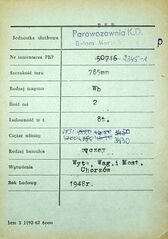 P. K. P.
Jednostka służbowa
Parowozownia K.D.
Bytom
Nr inwentarza PKP 50716 2345-1
Szerokość toru 785mm
Rodzaj wagonu Wb
Ilość osi 2
Ładowność w t. 8t.
Ciężar własny 3430
Rodzaj hamulca ręczny
Wytwórnia Wytw. Wag. i Most.
Chorzów
Rok budowy 1948r.